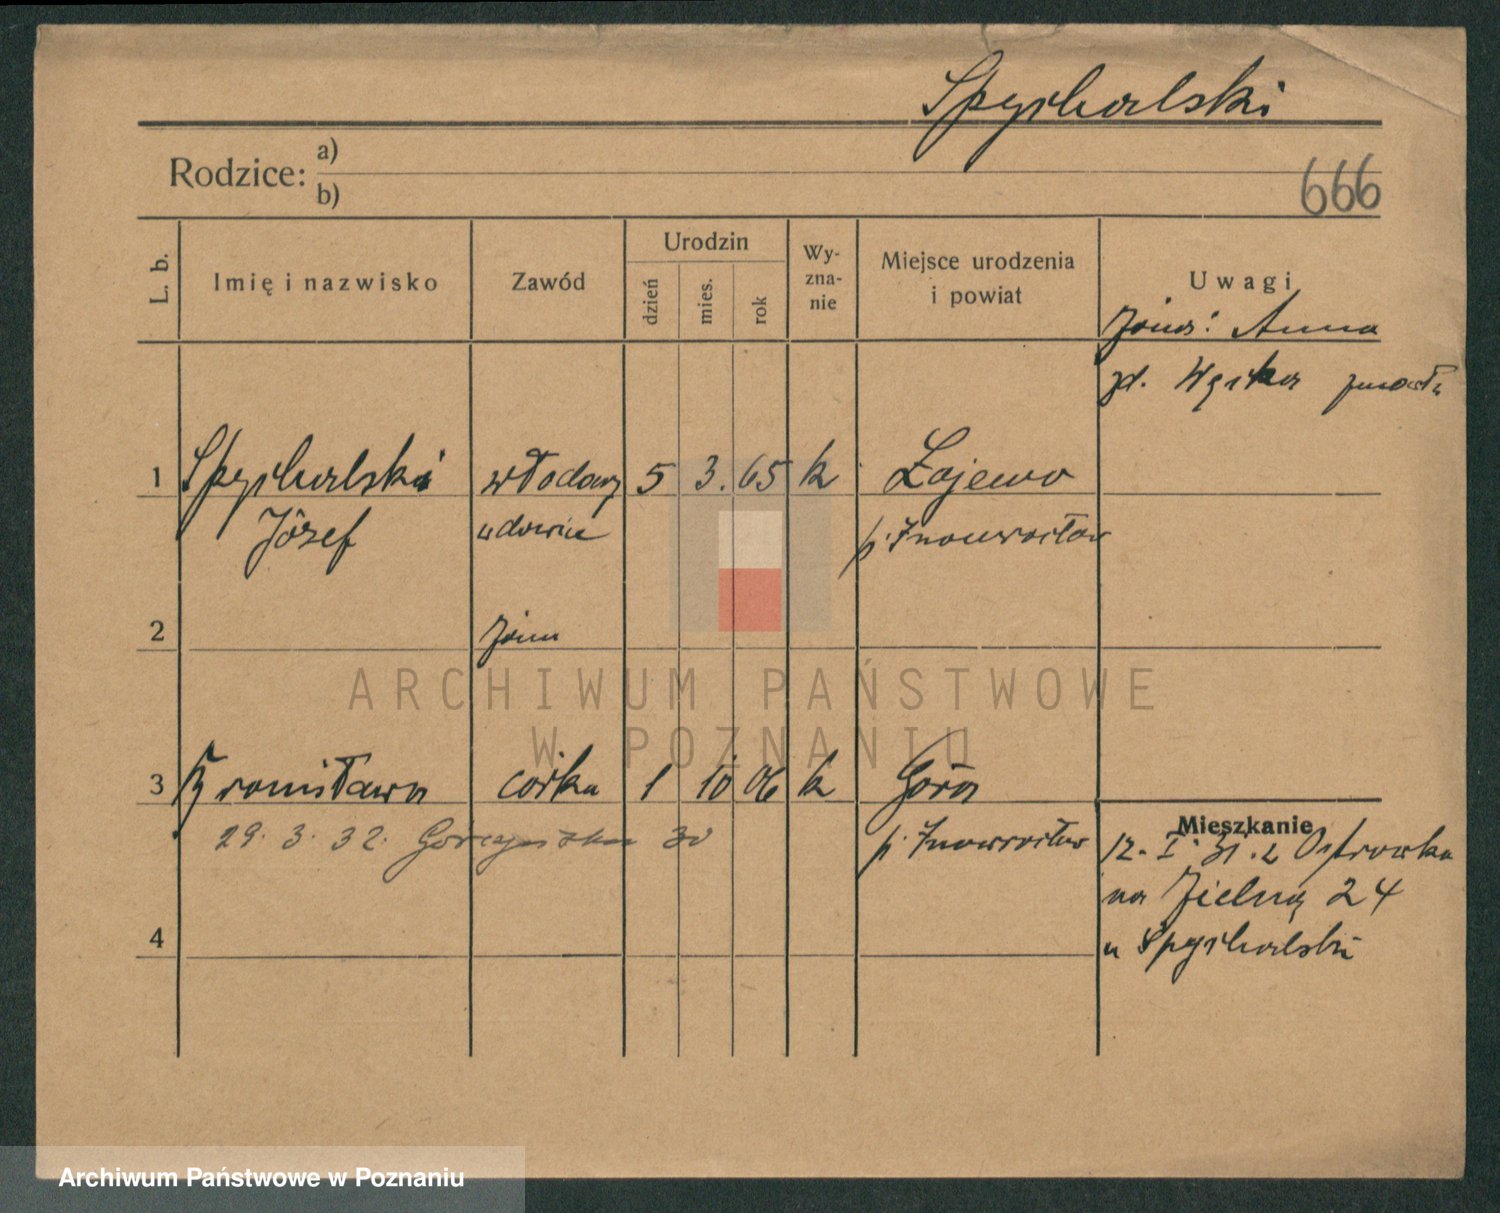 Spychalski
Rodzice: a)
b)
666
L. b.
Imię i nazwisko
Zawód
Urodzin
dzień
mies.
rok
Wy-
zna-
nie
Miejsce urodzenia
i powiat
Uwagi
żona: Anna
zd. Węcka zmarła
1 Spychalski włodarz 5 3. 65 k Łojewo
Józef wdowiec p. Inowrocław
2 żona
3 Bronisława córka 1 10 06 k Góra
29. 3. 32. 30 p. Inowrocław
Mieszkanie
12. I. 31. z Ostrówka
na Zielną 24
u Spychalski
4
ARCHIWUM PAŃSTWOWE
W POZNANIU
Archiwum Państwowe w Poznaniu